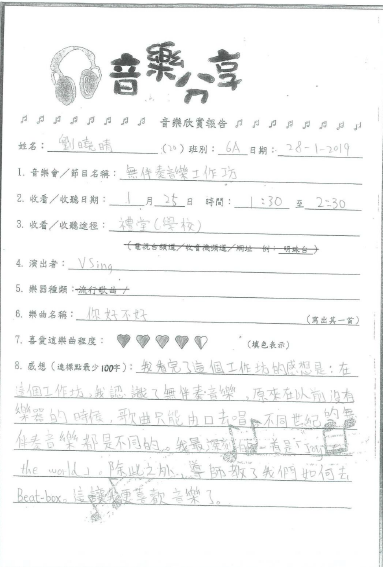 音樂分享
音樂欣賞報告
姓名：劉曉晴 (20) 班別：6A 日期：28-1-2019
1. 音樂會／節目名稱：無伴奏音樂工作坊
2. 收看／收聽日期：1 月 25 日 時間：1:30 至 2:30
3. 收看／收聽途徑：禮堂(學校)
(電視台頻道／收音機頻道／網址 例：明珠台)
4. 演出者：VSing
5. 樂器種類：流行歌曲／
6. 樂曲名稱：你好不好 (寫出其一首)
7. 喜愛這樂曲程度： (填色表示)
8. 感想（這樣點最少100字）：我看完了這個工作坊的感想是：在
這個工作坊，我認識了無伴奏音樂，原來在以前沒有
樂器的時候，歌曲只能由口去唱，不同世紀的無
伴奏音樂都是不同的。我最 一首是「Sing
the world」，除此之外，導師教了我們如何去
Beat-box。這讓我更喜歡音樂了。